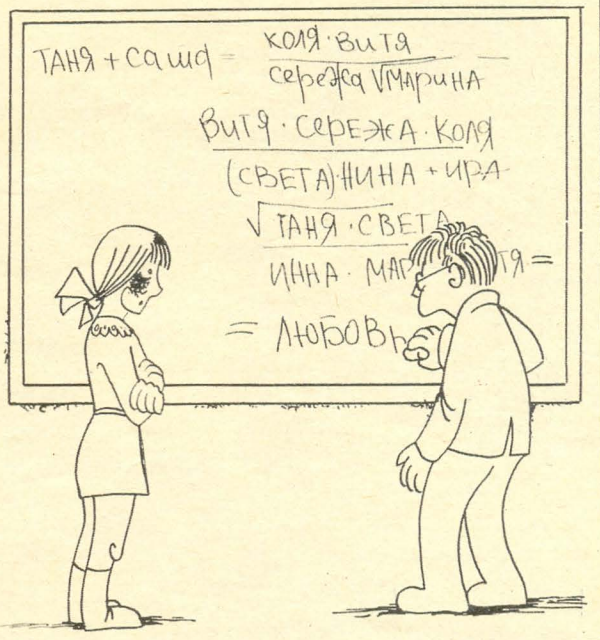 ТАНЯ + Саша = КОЛЯ · ВИТЯ
Сережа √МАРИНА
ВИТЯ · СЕРЕЖА · КОЛЯ
(СВЕТА) · НИНА + ИРА
√ТАНЯ · СВЕТА
ИННА · МАР ТЯ =
= ЛЮБОВЬ